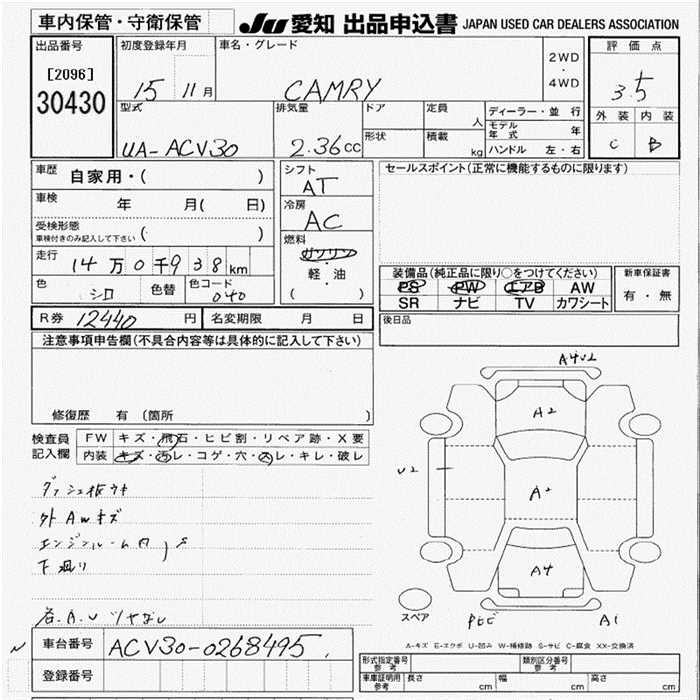 車内保管・守衛保管
JU 愛知 出品申込書 JAPAN USED CAR DEALERS ASSOCIATION
出品番号
[2096]
30430
初度登録年月
15 11月
車名・グレード
CAMRY
2WD
・
4WD
評価点
3.5
外装 内装
C B
型式
UA-ACV30
排気量
2.36cc
ドア
定員
人
形状
積載
kg
ディーラー・並 行
モデル年式 年
ハンドル 左・右
車歴
自家用・( )
車検
年 月( 日)
受検形態
車検付きのみ記入して下さい ( )
走行
14万0千938km
色
シロ
色替
色コード
040
シフト
AT
冷房
AC
燃料
ガソリン
軽・油
( )
セールスポイント(正常に機能するものに限ります)
装備品(純正品に限り○をつけてください)
PS PW エアB AW
SR ナビ TV カワシート
新車保証書
有・無
後日品
R券 12440 円
名変期限 月 日
注意事項申告欄(不具合内容等は具体的に記入して下さい)
修復歴 有 〔箇所 〕
検査員
記入欄
FW キズ・飛石・ヒビ割・リペア跡・X要
内装 キズ・汚レ・コゲ・穴・スレ・キレ・破レ
外AWキズ
下廻り
A4U2
A2
U2
A4
スペア
A1
A-キズ E-エクボ U-凹み W-補修跡 S-サビ C-腐食 XX-交換済
車台番号
ACV30-0268495
登録番号
形式指定番号
参考
類別区分番号
参考
車庫証明用
参考
長さ cm 幅 cm 高さ cm